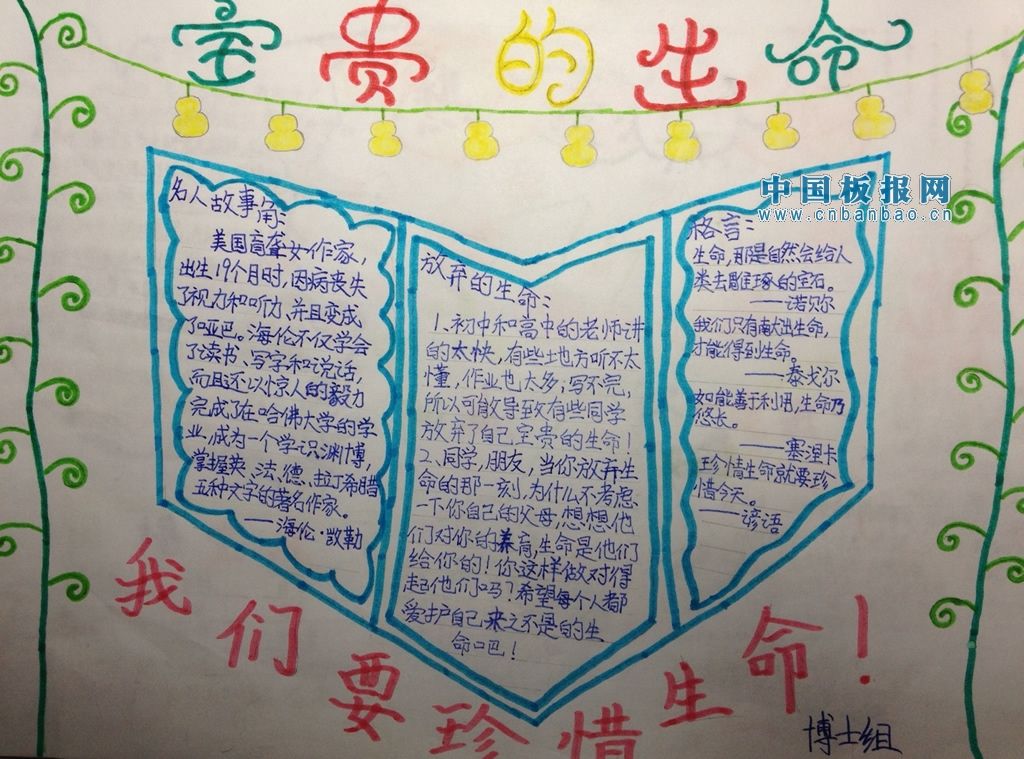 宝贵的生命
中国板报网
www.cnbanbao.cn
名人故事角:
美国盲聋女作家,
出生19个月时,因病丧失
了视力和听力,并且变成
了哑巴。海伦不仅学会
了读书、写字和说话,
而且还以惊人的毅力
完成了在哈佛大学的学
业,成为一个学识渊博,
掌握英、法、德、拉丁希腊
五种文字的著名作家。
——海伦·凯勒
放弃的生命:
1、初中和高中的老师讲
的太快,有些地方听不太
懂,作业也太多;写不完,
所以可能导致有些同学
放弃了自己宝贵的生命!
2、同学,朋友,当你放弃生
命的那一刻,为什么不考虑
一下你自己的父母,想想他
们对你的养育,生命是他们
给你的!你这样做对得
起他们吗?希望每个人都
爱护自己来之不是的生
命吧!
格言:
生命,那是自然会给人
类去雕琢的宝石。
——诺贝尔
我们只有献出生命,
才能得到生命。
——泰戈尔
如能善于利用,生命乃
悠长。
——塞涅卡
珍惜生命就要珍
惜今天。
——谚语
我们要珍惜生命!
博士组